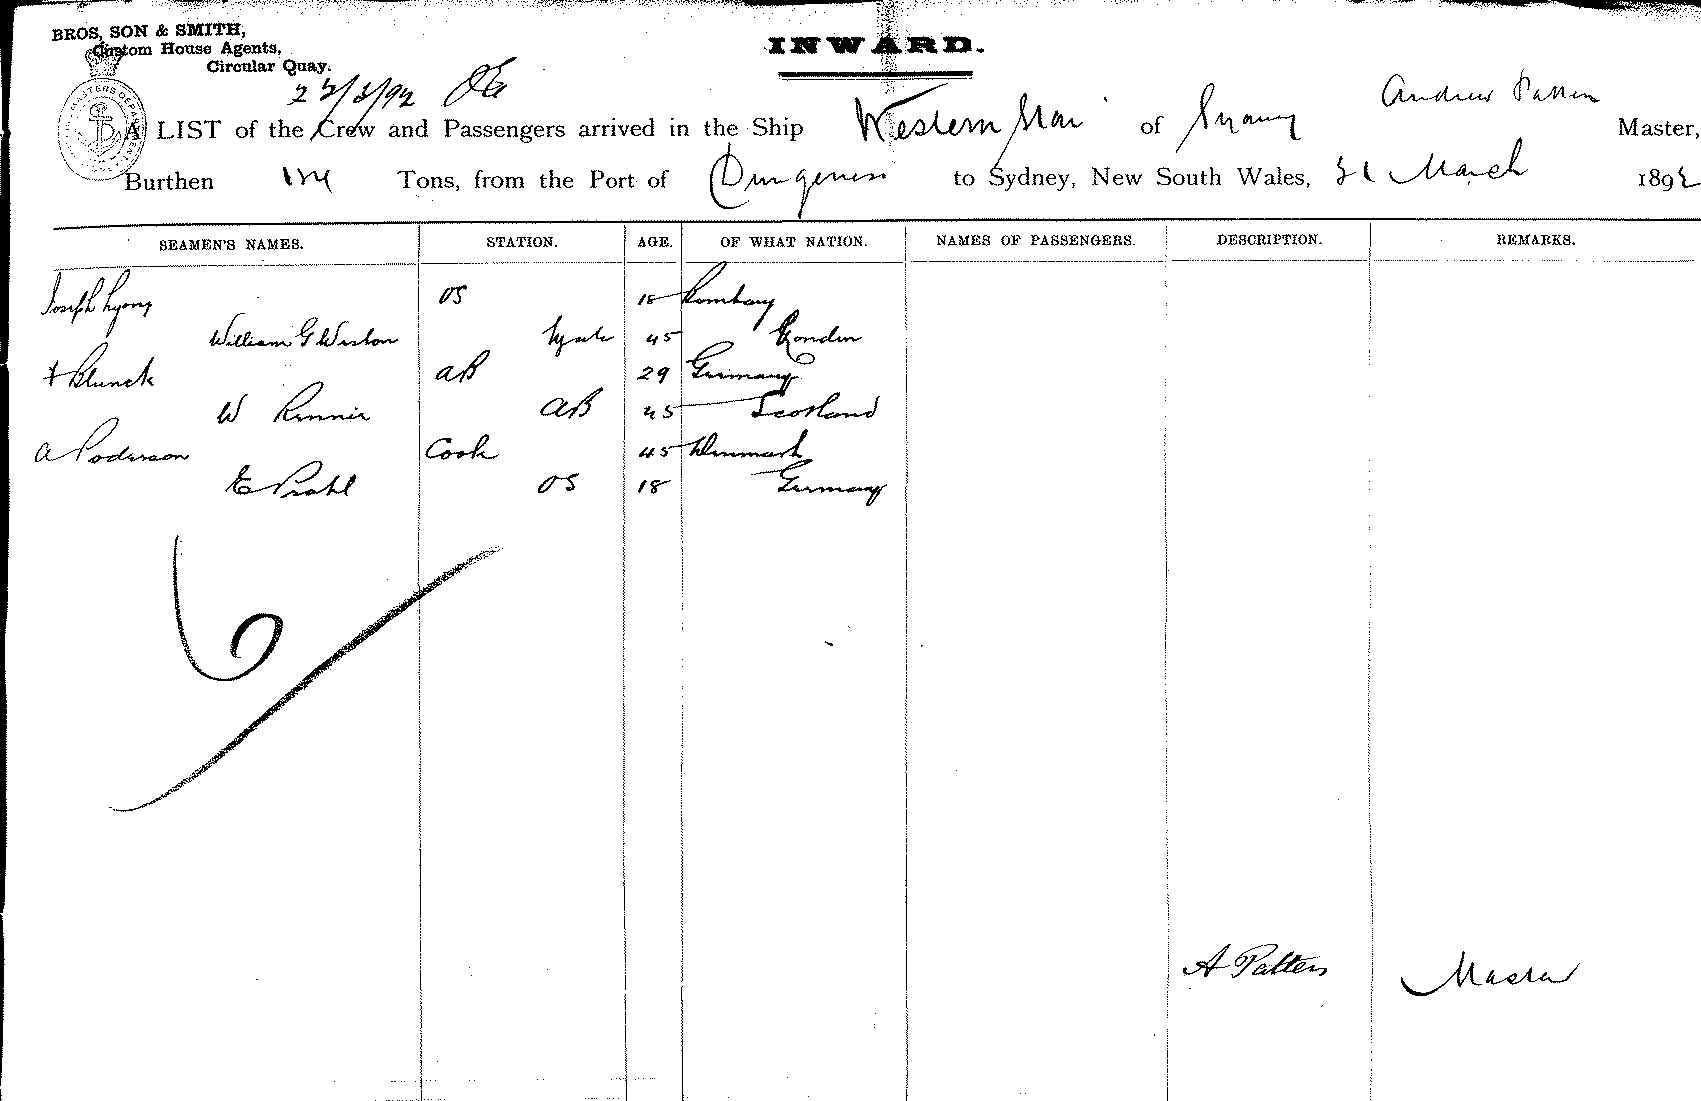 BROS, SON & SMITH,
Custom House Agents,
Circular Quay.
INWARD.
22/3/92
Andrew Patten
A LIST of the Crew and Passengers arrived in the Ship Western Star of Sydney Master,
Burthen Tons, from the Port of Dungeness to Sydney, New South Wales, 21 March 1892
SEAMEN'S NAMES. STATION. AGE. OF WHAT NATION. NAMES OF PASSENGERS. DESCRIPTION. REMARKS.
Joseph Lyons OS 18 Bombay
William G Weston Mate 45 London
Blunck AB 29 Germany
W Rennie AB 45 Scotland
A Poderson Cook 45 Denmark
E Prahl OS 18 Germany
6
A Patten Master